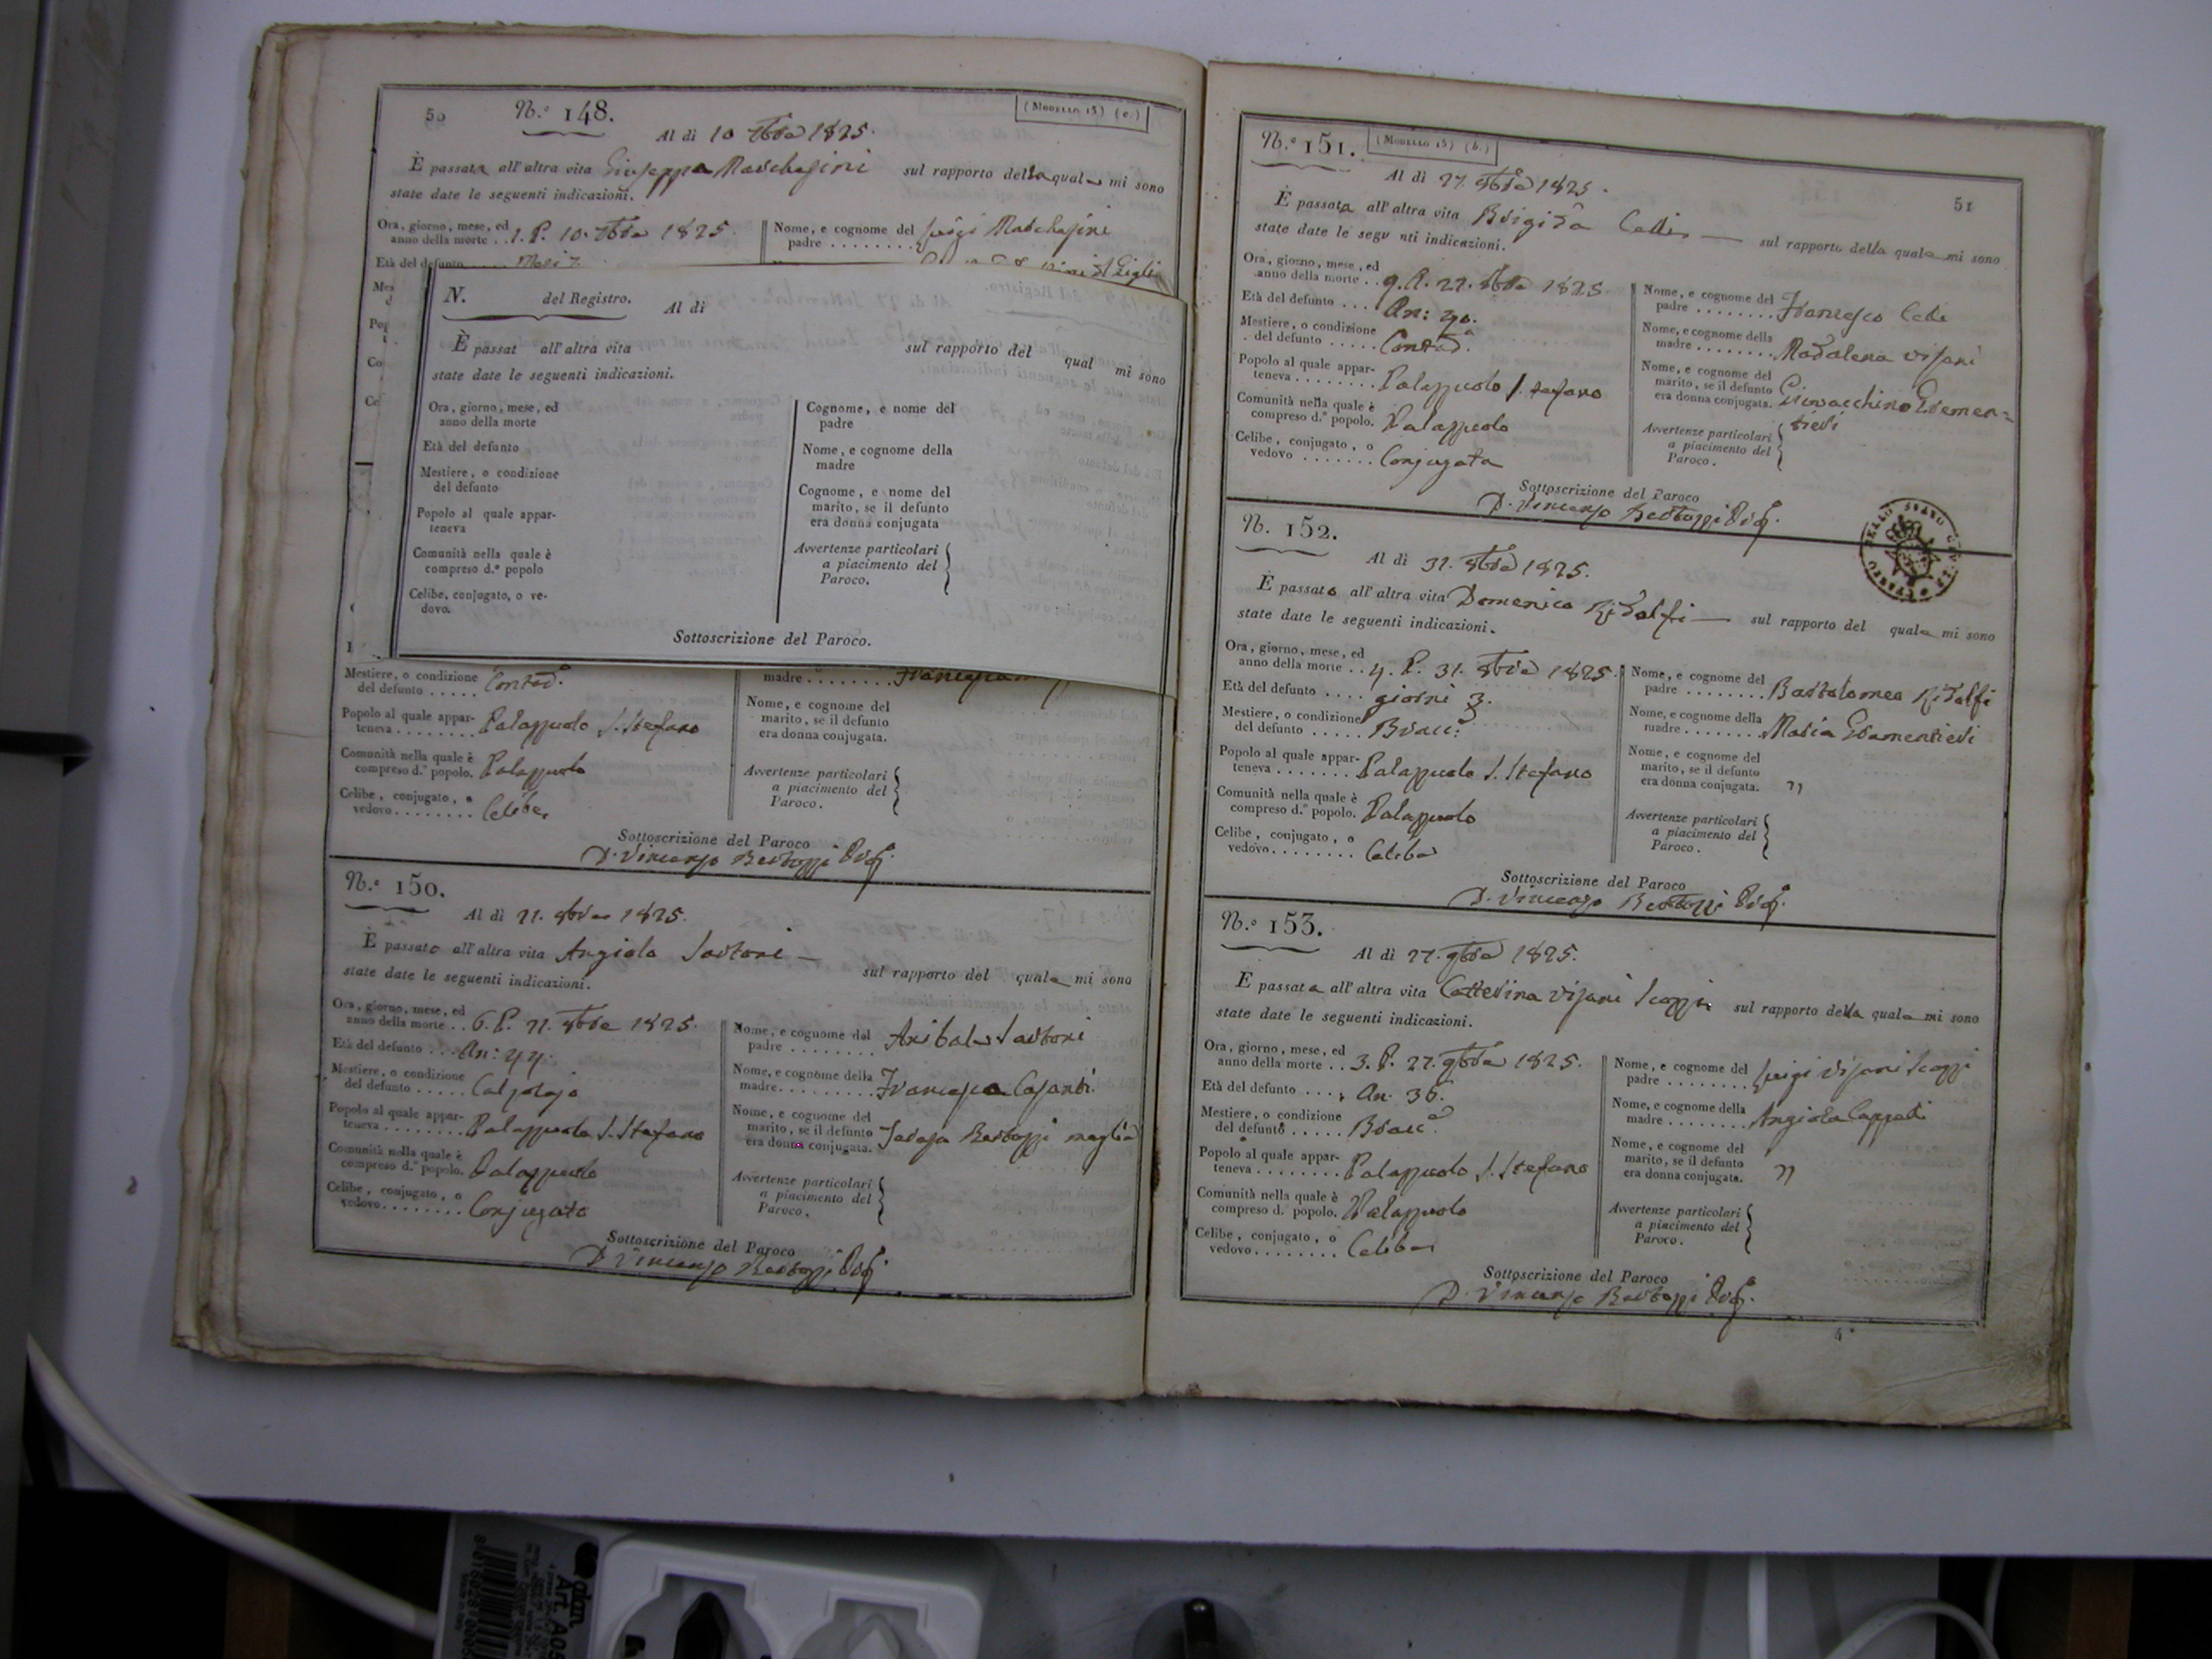 50
N.º 148.
(Modello 15) (e.)
Al dì 10 7bre 1825.
È passata all'altra vita Giuseppa Maschesini sul rapporto della quale mi sono
state date le seguenti indicazioni.
Ora, giorno, mese, ed
anno della morte .. 1. P. 10. 7bre 1825.
Età del defunto ..... Mesi 7.
Nome, e cognome del
padre ........ Luigi Maschesini
N. del Registro.
Al dì
È passat all'altra vita sul rapporto del qual mi sono
state date le seguenti indicazioni.
Ora, giorno, mese, ed
anno della morte
Età del defunto
Mestiere, o condizione
del defunto
Popolo al quale appar-
teneva
Comunità nella quale è
compreso d.º popolo
Celibe, conjugato, o ve-
dovo.
Cognome, e nome del
padre
Nome, e cognome della
madre
Cognome, e nome del
marito, se il defunto
era donna conjugata
Avvertenze particolari
a piacimento del
Paroco.
Sottoscrizione del Paroco.
Mestiere, o condizione
del defunto ..... Contad.
Popolo al quale appar-
teneva ........ Palazzuolo S. Stefano
Comunità nella quale è
compreso d.º popolo. Palazzuolo
Celibe, conjugato, o
vedovo ........ Celibe
madre ........ Francesca
Nome, e cognome del
marito, se il defunto
era donna conjugata.
Avvertenze particolari
a piacimento del
Paroco.
Sottoscrizione del Paroco
D. Vincenzo Bertozzi
N.º 150.
Al dì 21. 8bre 1825.
È passato all'altra vita Angiola Sartoni sul rapporto del quale mi sono
state date le seguenti indicazioni.
Ora, giorno, mese, ed
anno della morte .. 6. P. 21. 8bre 1825.
Età del defunto ... An: 44.
Mestiere, o condizione
del defunto ..... Calzolajo
Popolo al quale appar-
teneva ........ Palazzuolo S. Stefano
Comunità nella quale è
compreso d.º popolo. Palazzuolo
Celibe, conjugato, o
vedovo ........ Conjugato
Nome, e cognome del
padre ........ Anibale Sartoni
Nome, e cognome della
madre ........ Francesca
Nome, e cognome del
marito, se il defunto
era donna conjugata. Bertozzi moglie
Avvertenze particolari
a piacimento del
Paroco.
Sottoscrizione del Paroco
D. Vincenzo Bertozzi
N.º 151.
(Modello 15) (b.)
51
Al dì 27. 8bre 1825.
È passata all'altra vita Brigida sul rapporto della quale mi sono
state date le segu nti indicazioni.
Ora, giorno, mese, ed
anno della morte .. 9. A. 27. 8bre 1825.
Età del defunto .... An: 70.
Mestiere, o condizione
del defunto ..... Contad.
Popolo al quale appar-
teneva ........ Palazzuolo S. Stefano
Comunità nella quale è
compreso d.º popolo. Palazzuolo
Celibe, conjugato, o
vedovo ....... Conjugata
Nome, e cognome del
padre ........ Francesco
Nome, e cognome della
madre ........ Madalena Visani
Nome, e cognome del
marito, se il defunto
era donna conjugata. Giovacchino
Avvertenze particolari
a piacimento del
Paroco.
Sottoscrizione del Paroco
D. Vincenzo Bertozzi
N. 152.
Al dì 31. 8bre 1825.
È passato all'altra vita Domenico Ridolfi sul rapporto del quale mi sono
state date le seguenti indicazioni.
Ora, giorno, mese, ed
anno della morte .. 4. P. 31. 8bre 1825.
Età del defunto .... giorni 3.
Mestiere, o condizione
del defunto ..... Bracc.
Popolo al quale appar-
teneva ....... Palazzuolo S. Stefano
Comunità nella quale è
compreso d.º popolo. Palazzuolo
Celibe, conjugato, o
vedovo ........ Celibe
Nome, e cognome del
padre ........ Bartolomeo Ridolfi
Nome, e cognome della
madre ........ Maria
Nome, e cognome del
marito, se il defunto
era donna conjugata. "
Avvertenze particolari
a piacimento del
Paroco.
Sottoscrizione del Paroco
D. Vincenzo Bertozzi
N.º 153.
Al dì 27. 9bre 1825.
È passata all'altra vita Catterina Visani Scozzi sul rapporto della quale mi sono
state date le seguenti indicazioni.
Ora, giorno, mese, ed
anno della morte .. 3. P. 27. 9bre 1825.
Età del defunto .... An. 36.
Mestiere, o condizione
del defunto ..... Bracc.
Popolo al quale appar-
teneva ........ Palazzuolo S. Stefano
Comunità nella quale è
compreso d.º popolo. Palazzuolo
Celibe, conjugato, o
vedovo ........ Celibe
Nome, e cognome del
padre ........ Luigi Visani Scozzi
Nome, e cognome della
madre ........ Angiola
Nome, e cognome del
marito, se il defunto
era donna conjugata. "
Avvertenze particolari
a piacimento del
Paroco.
Sottoscrizione del Paroco
D. Vincenzo Bertozzi